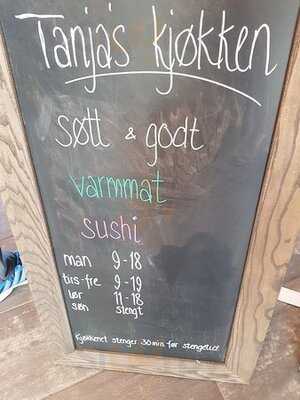 Tanja's kjøkken
søtt & godt
varmmat
sushi
man 9-18
tirs-fre 9-19
lør 11-18
søn stengt
Kjøkkenet stenger 30 min før stengetid